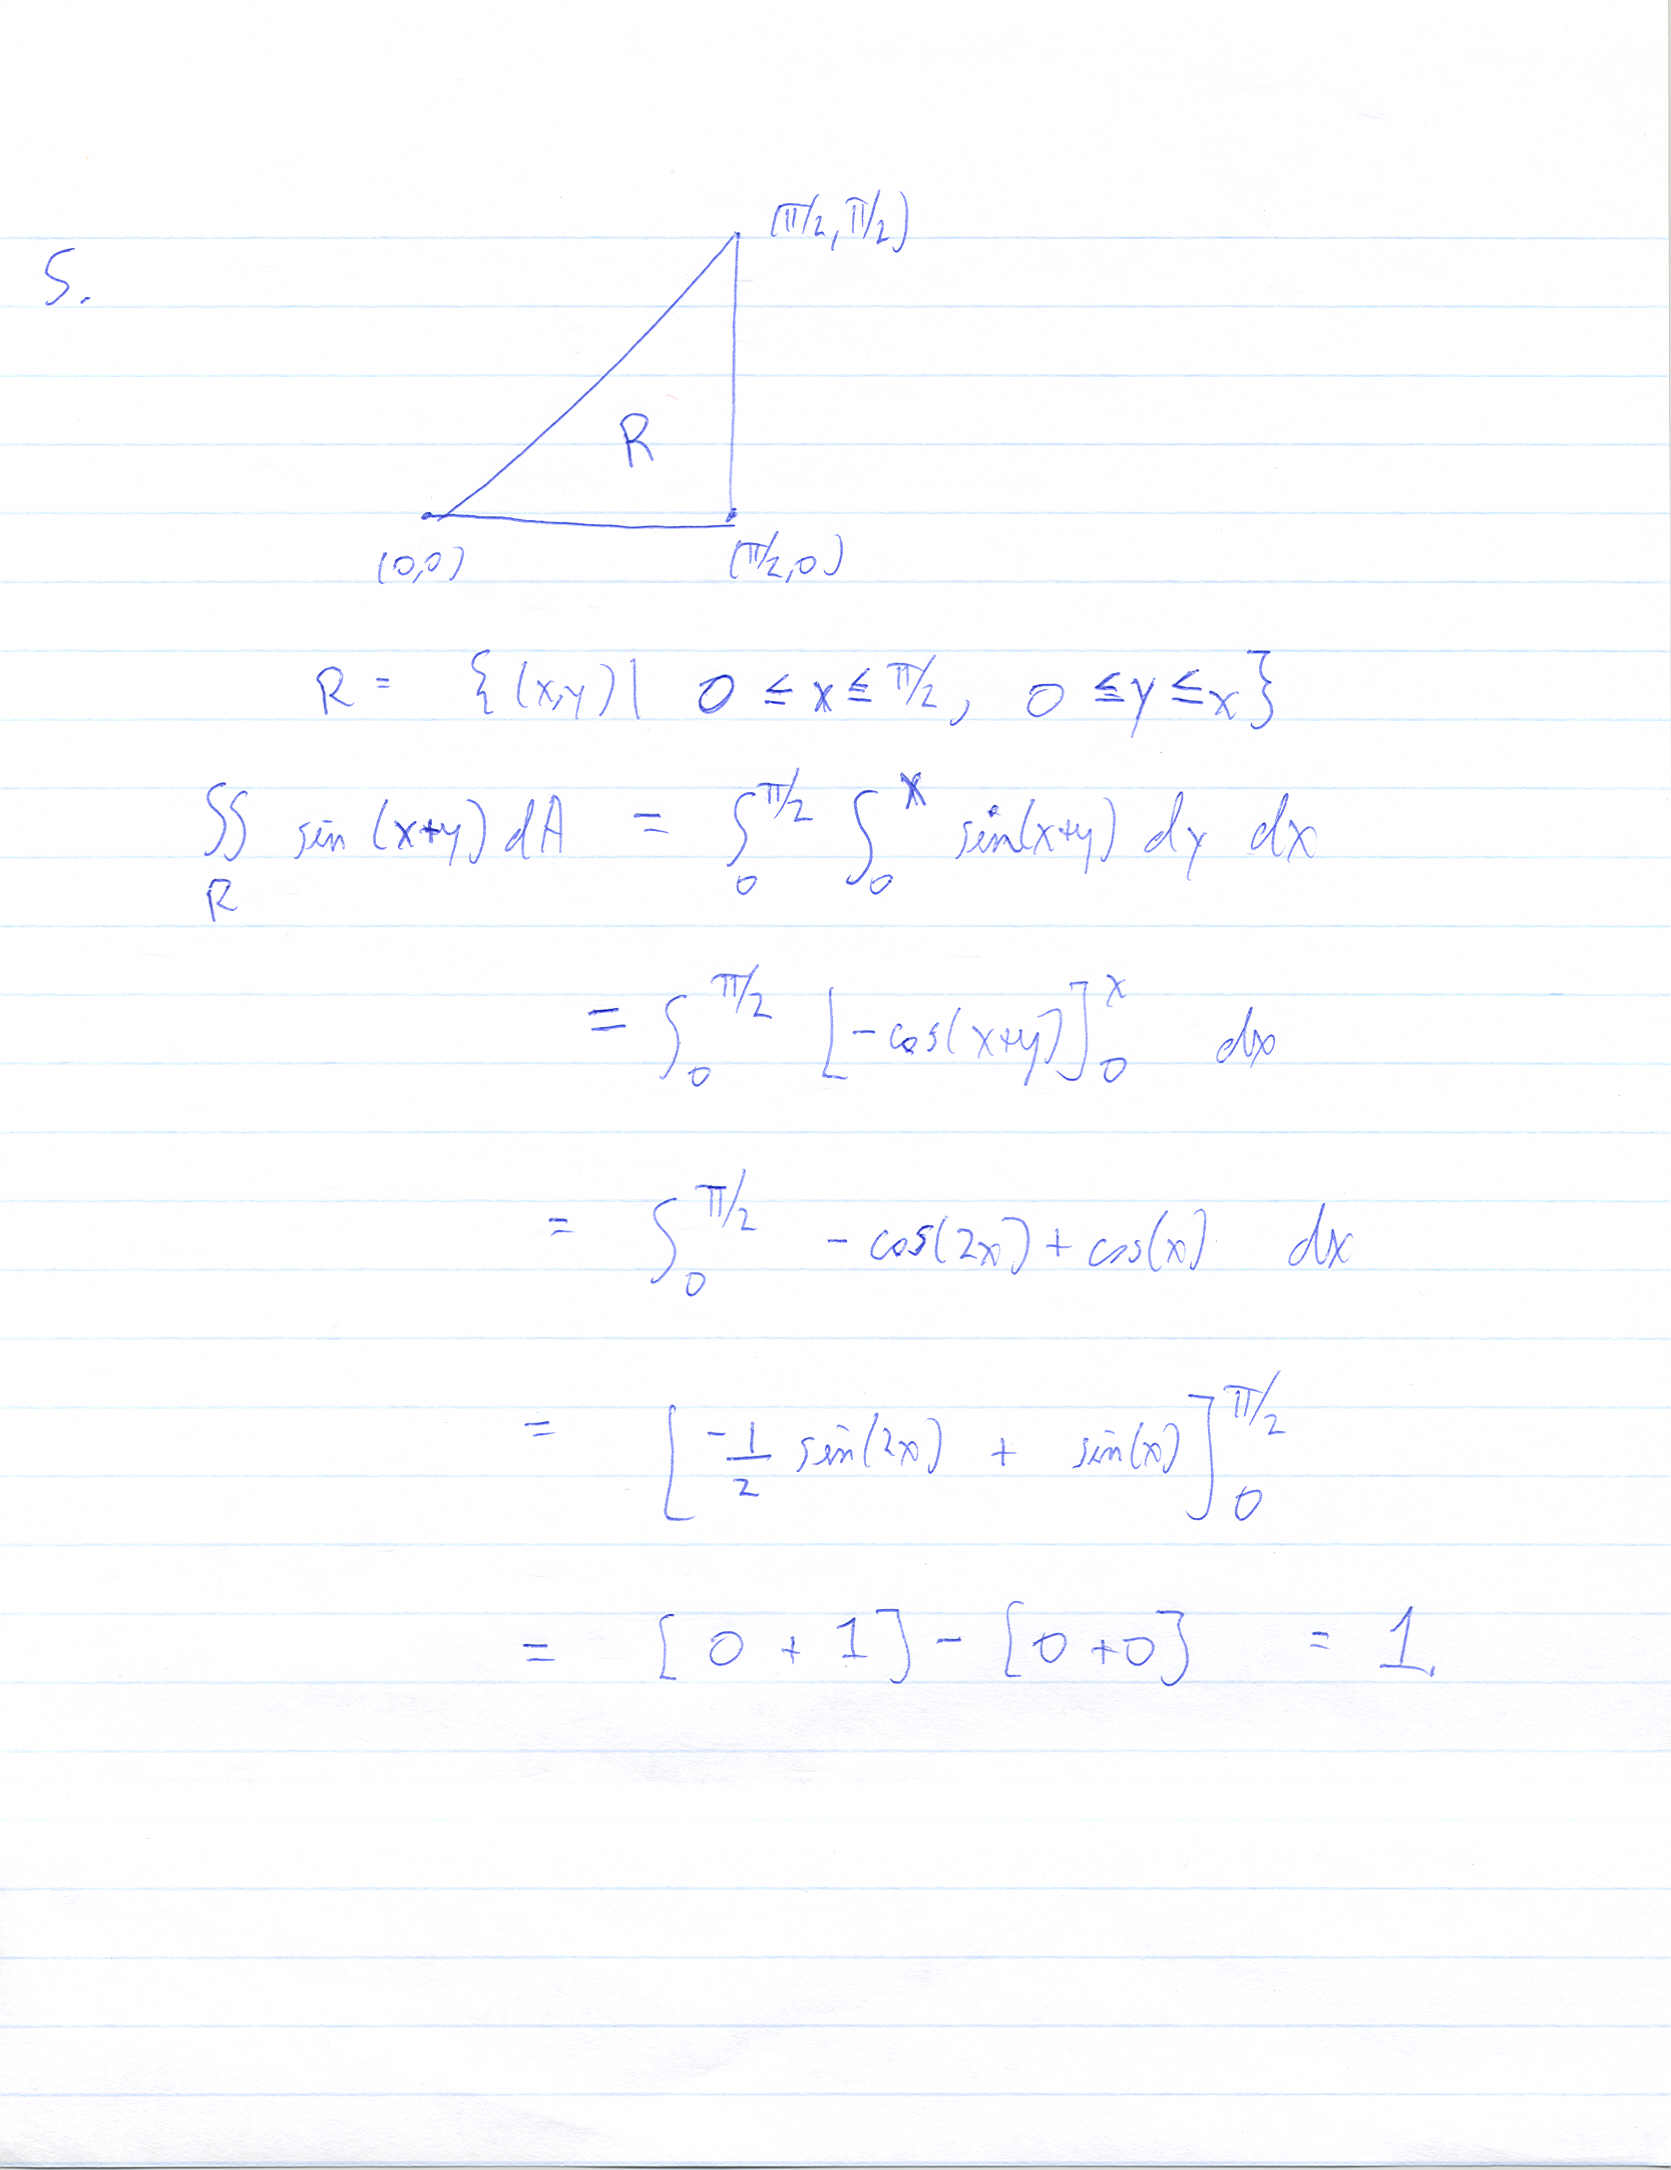 (π/2, π/2)
5.
R
(0,0) (π/2,0)
R = {(x,y) | 0 ≤ x ≤ π/2, 0 ≤ y ≤ x}
∬_R sin(x+y) dA = ∫_0^{π/2} ∫_0^x sin(x+y) dy dx
= ∫_0^{π/2} [-cos(x+y)]_0^x dx
= ∫_0^{π/2} -cos(2x) + cos(x) dx
= [-1/2 sin(2x) + sin(x)]_0^{π/2}
= [0 + 1] - [0 + 0] = 1.